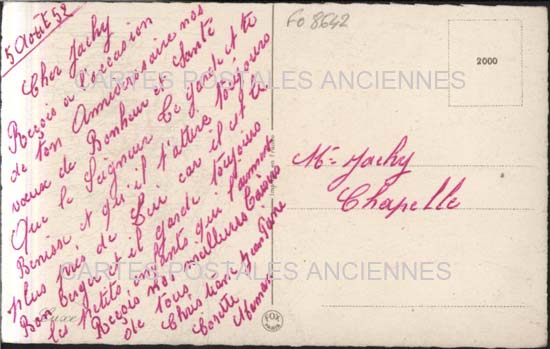 5 Août 52
Cher Jacky
Reçois à l'occasion
de ton Anniversaire nos
vœux de Bonheur et Santé
Que le Seigneur te garde et te
Benisse et qu'il t'attire toujours
plus près de Lui car il est le
Bon berger et il garde toujours
les Petits enfants qui l'aiment
Reçois nos meilleurs Baisers
de tous
Christian Jean Pierre
Colette Maman
FO 8642
2000
Mr Jacky
Chapelle
CARTES POSTALES ANCIENNES
CARTES POSTALES ANCIENNES
Luxe
FOX
PARIS